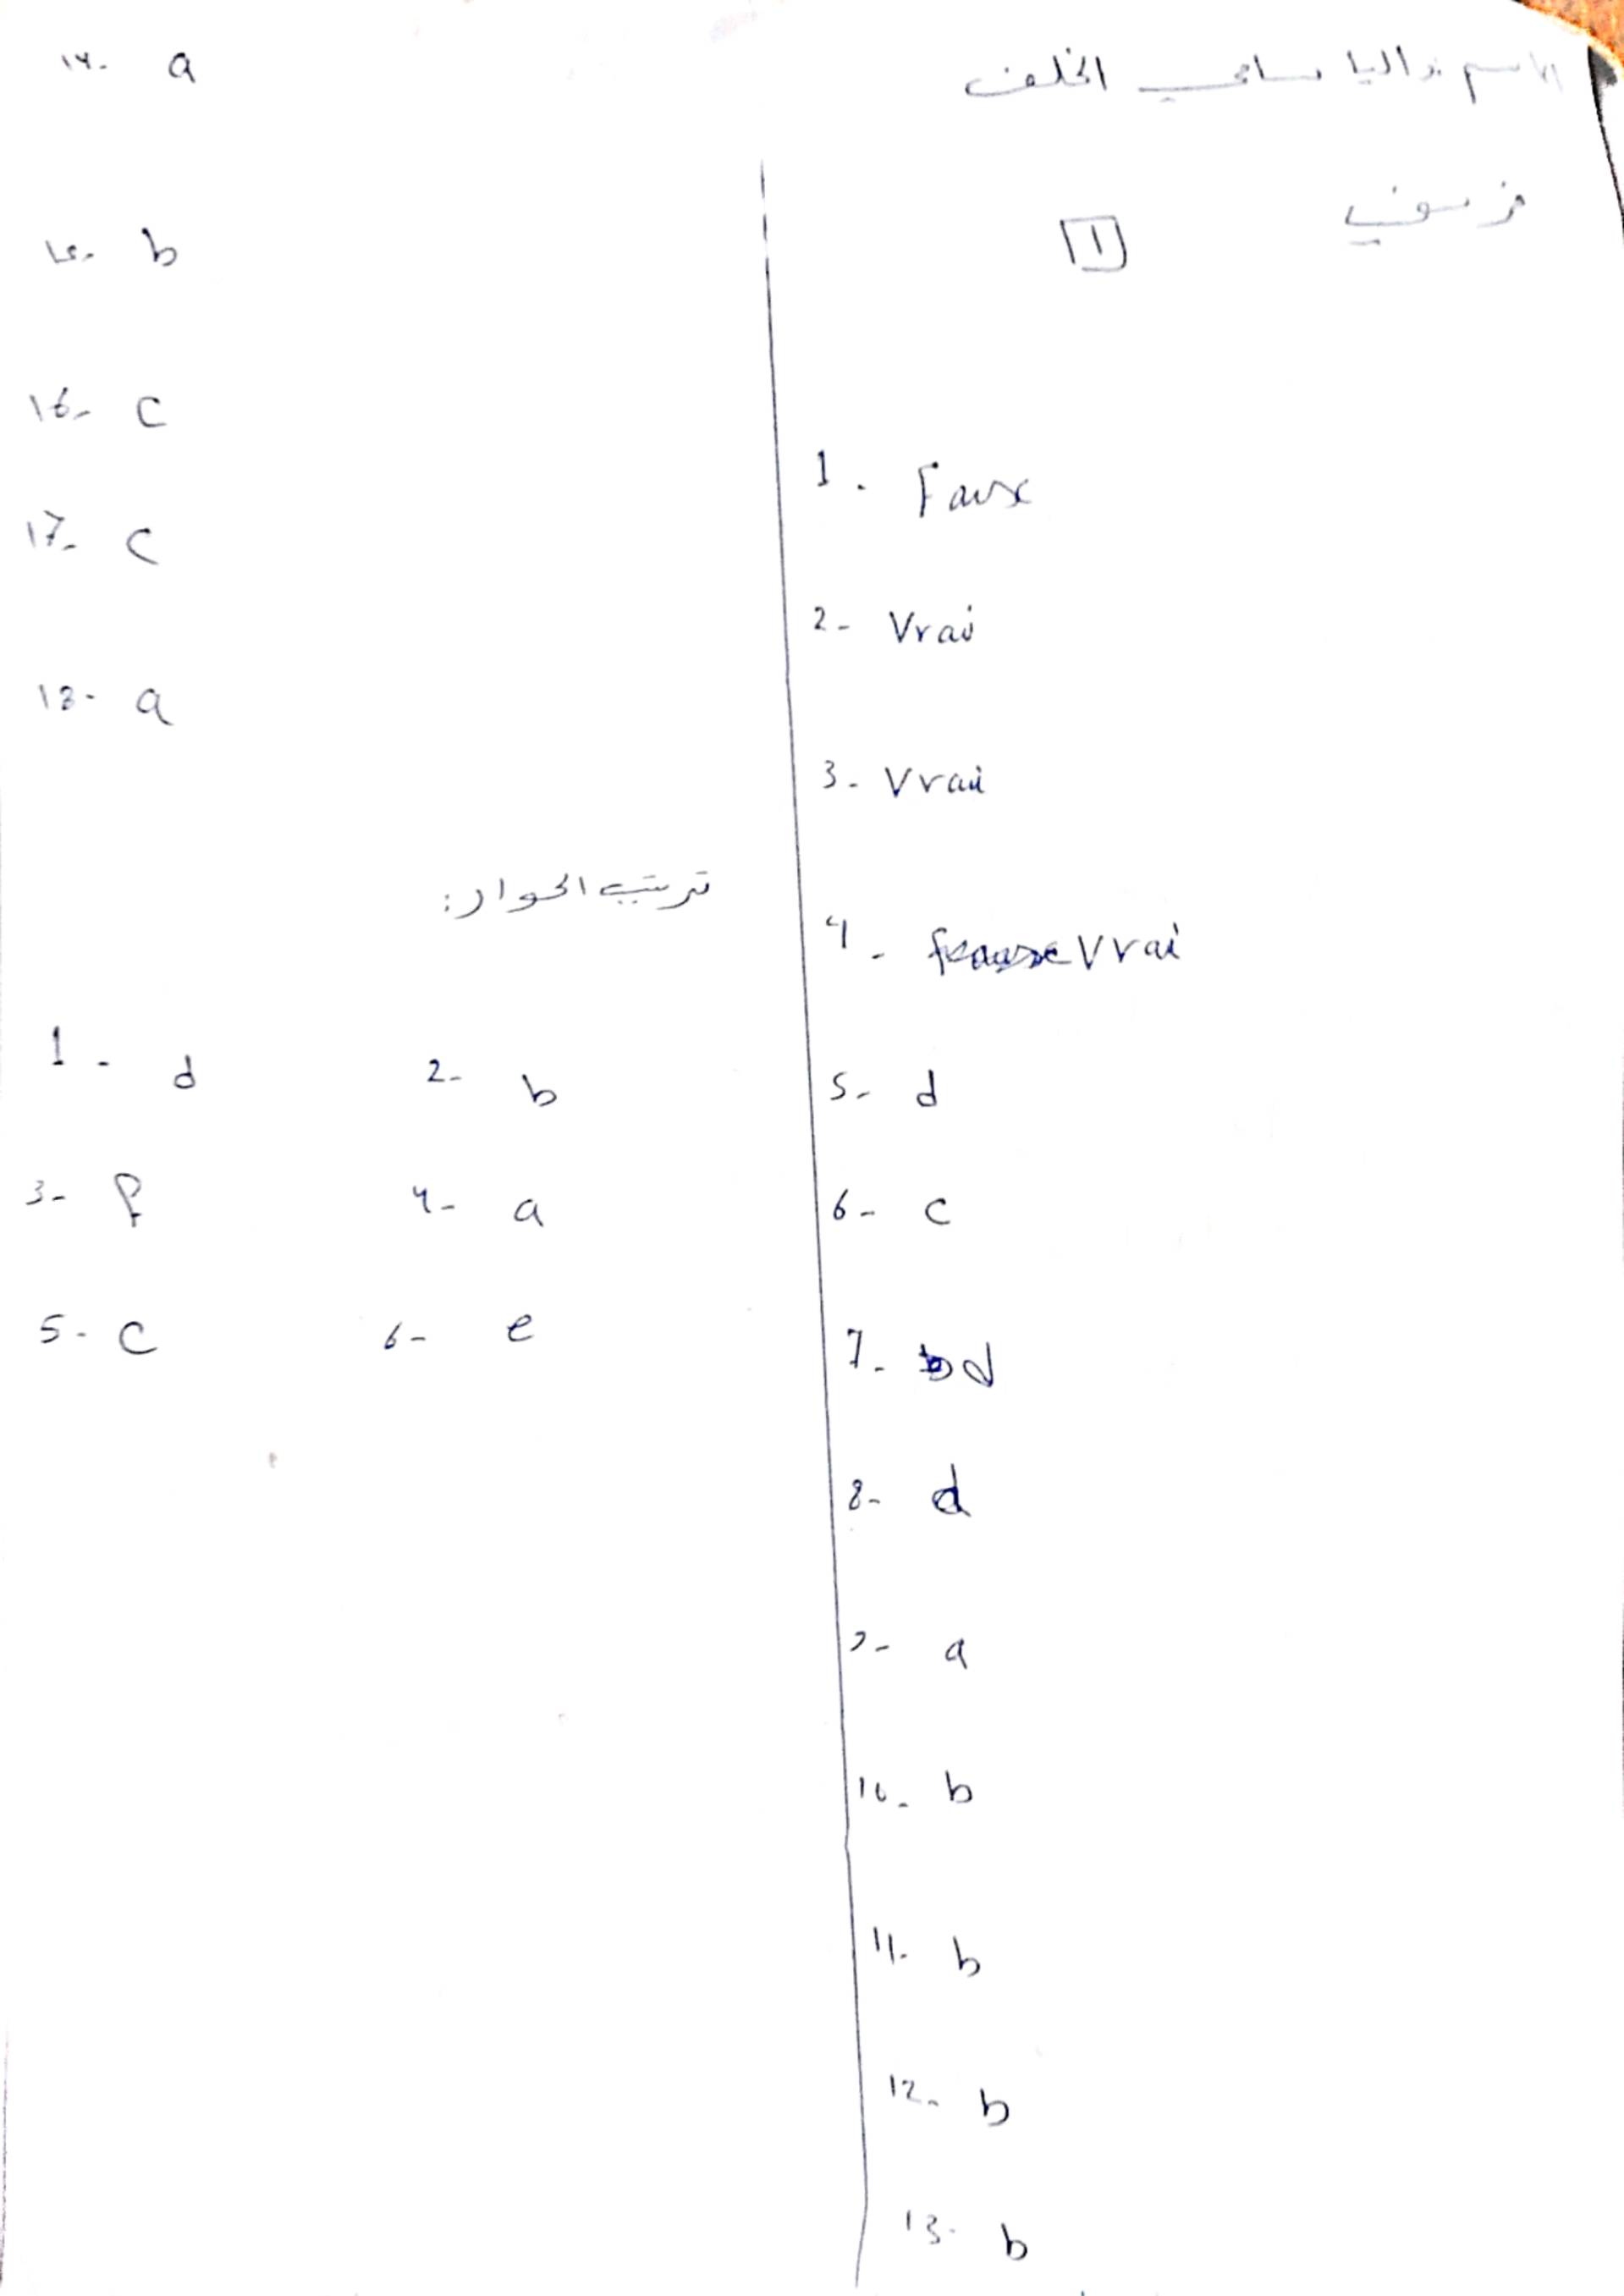 الاسم: داليا سامي الخلف
فرنسي
1
1. Faux
2- Vrai
3- Vrai
4- Vrai
5- d
6- c
7- d
8- d
9- a
10- b
11- b
12- b
13- b
14- a
15- b
16- c
17- c
18- a
ترتيب الحوار:
1- d 2- b
3- f 4- a
5- c 6- e